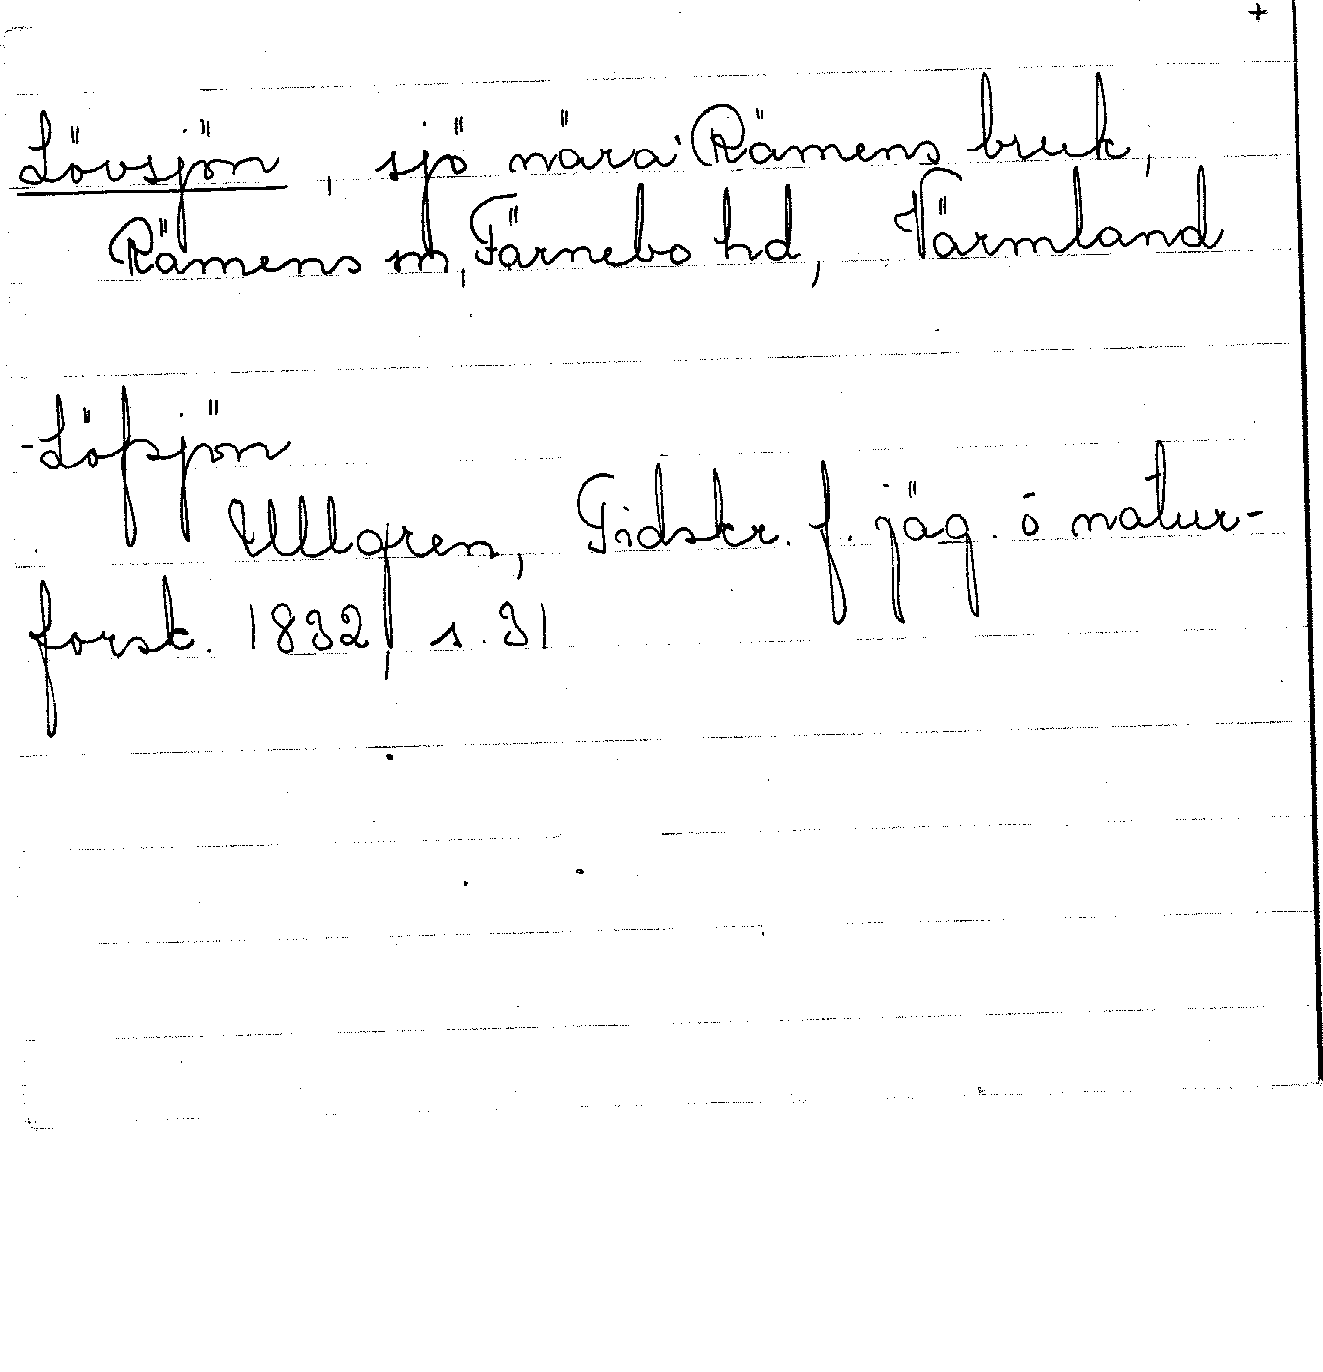 +
Lövsjön, sjö nära Rämens bruk,
Rämens sn, Färnebo hd, Värmland
Löfsjön
Ullgren, Tidskr. f. jäg. o natur-
forsk. 1832, s. 31